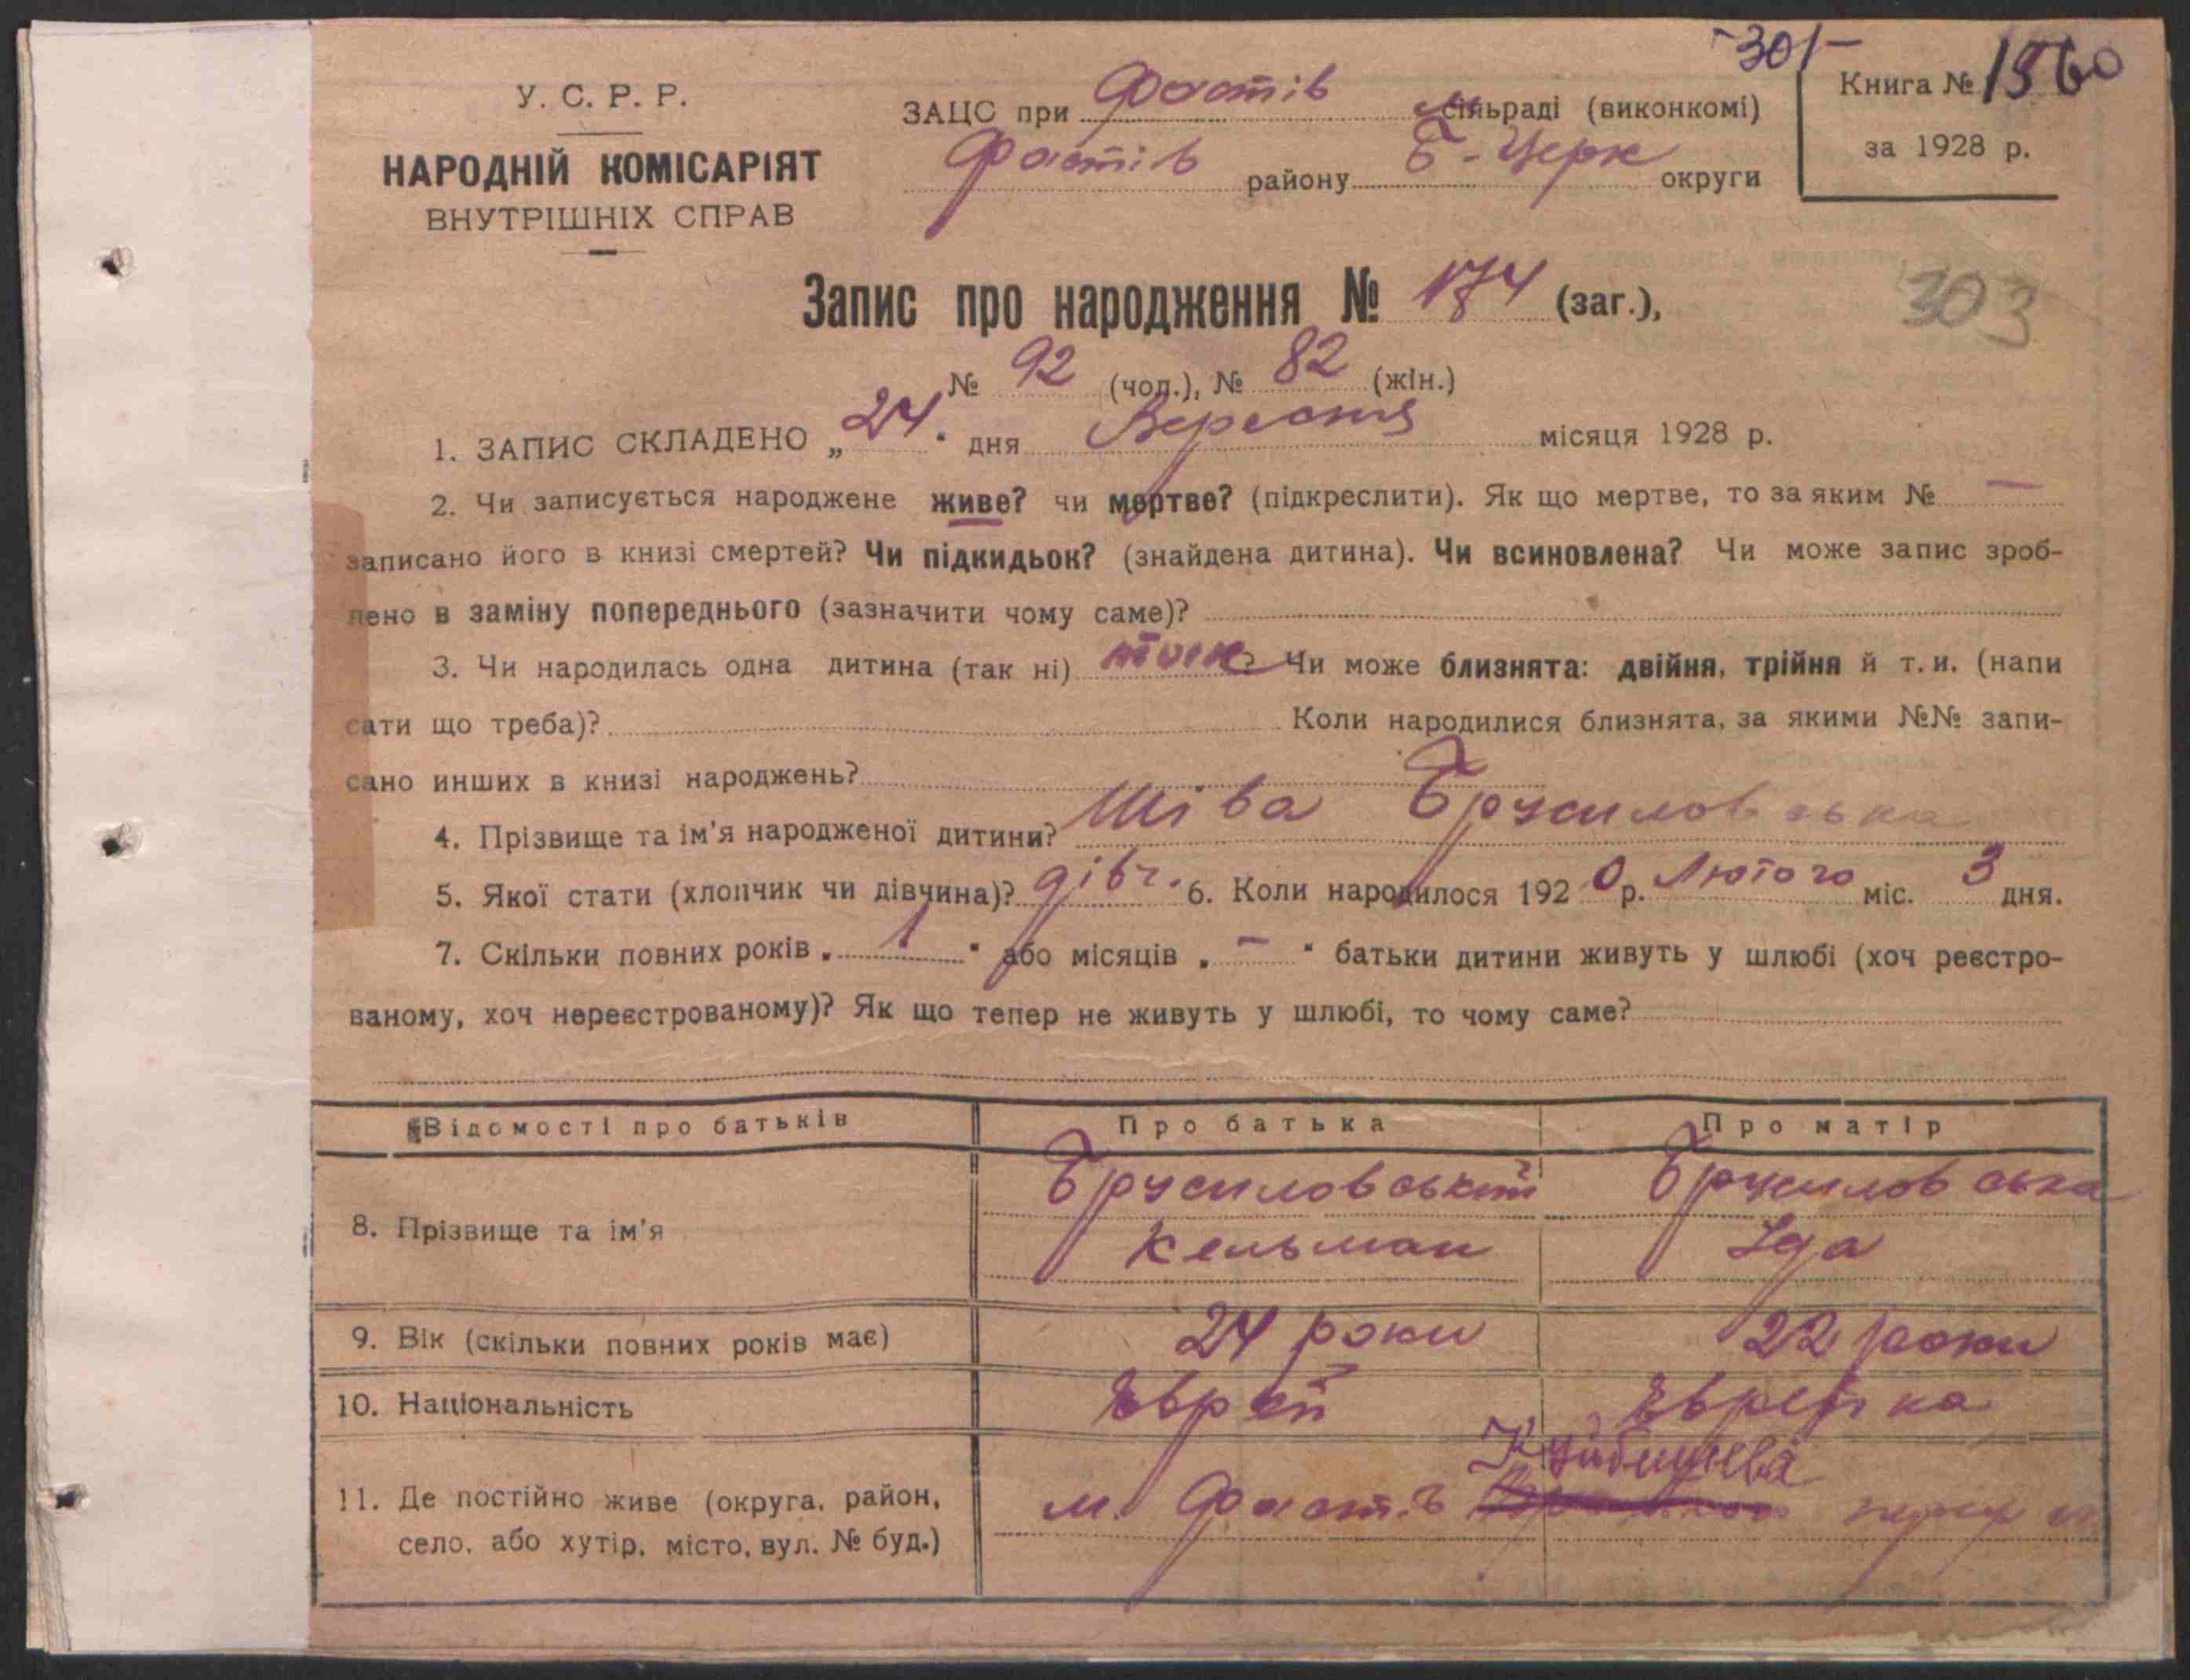 -301-
У. С. Р. Р.
НАРОДНІЙ КОМІСАРІЯТ
ВНУТРІШНІХ СПРАВ
ЗАЦС при Фастів сільраді (виконкомі)
Фастів району Б-Церк округи
Книга № 1560
за 1928 р.
303
Запис про народження № 174 (заг.),
№ 92 (чол.), № 82 (жін.)
1. ЗАПИС СКЛАДЕНО „24“ дня Вересня місяця 1928 р.
2. Чи записується народжене живе? чи мертве? (підкреслити). Як що мертве, то за яким № —
записано його в книзі смертей? Чи підкидьок? (знайдена дитина). Чи всиновлена? Чи може запис зроб-
лено в заміну попереднього (зазначити чому саме)?
3. Чи народилась одна дитина (так ні) так? Чи може близнята: двійня, трійня й т. и. (напи
сати що треба)? Коли народилися близнята, за якими №№ запи-
сано инших в книзі народжень?
4. Прізвище та ім'я народженої дитини? Шіва Брусиловська
5. Якої стати (хлопчик чи дівчина)? дівч. 6. Коли народилося 1920 р. Лютого міс. 3 дня.
7. Скільки повних років „1“ або місяців „—“ батьки дитини живуть у шлюбі (хоч реєстро-
ваному, хоч нереєстрованому)? Як що тепер не живуть у шлюбі, то чому саме?
Відомості про батьків Про батька Про матір
8. Прізвище та ім'я Брусиловський Кельман Брусиловська Іда
9. Вік (скільки повних років має) 24 роки 22 роки
10. Національність Еврей Еврейка
11. Де постійно живе (округа, район,
село, або хутір, місто, вул. № буд.) м. Фастів Куйбишева